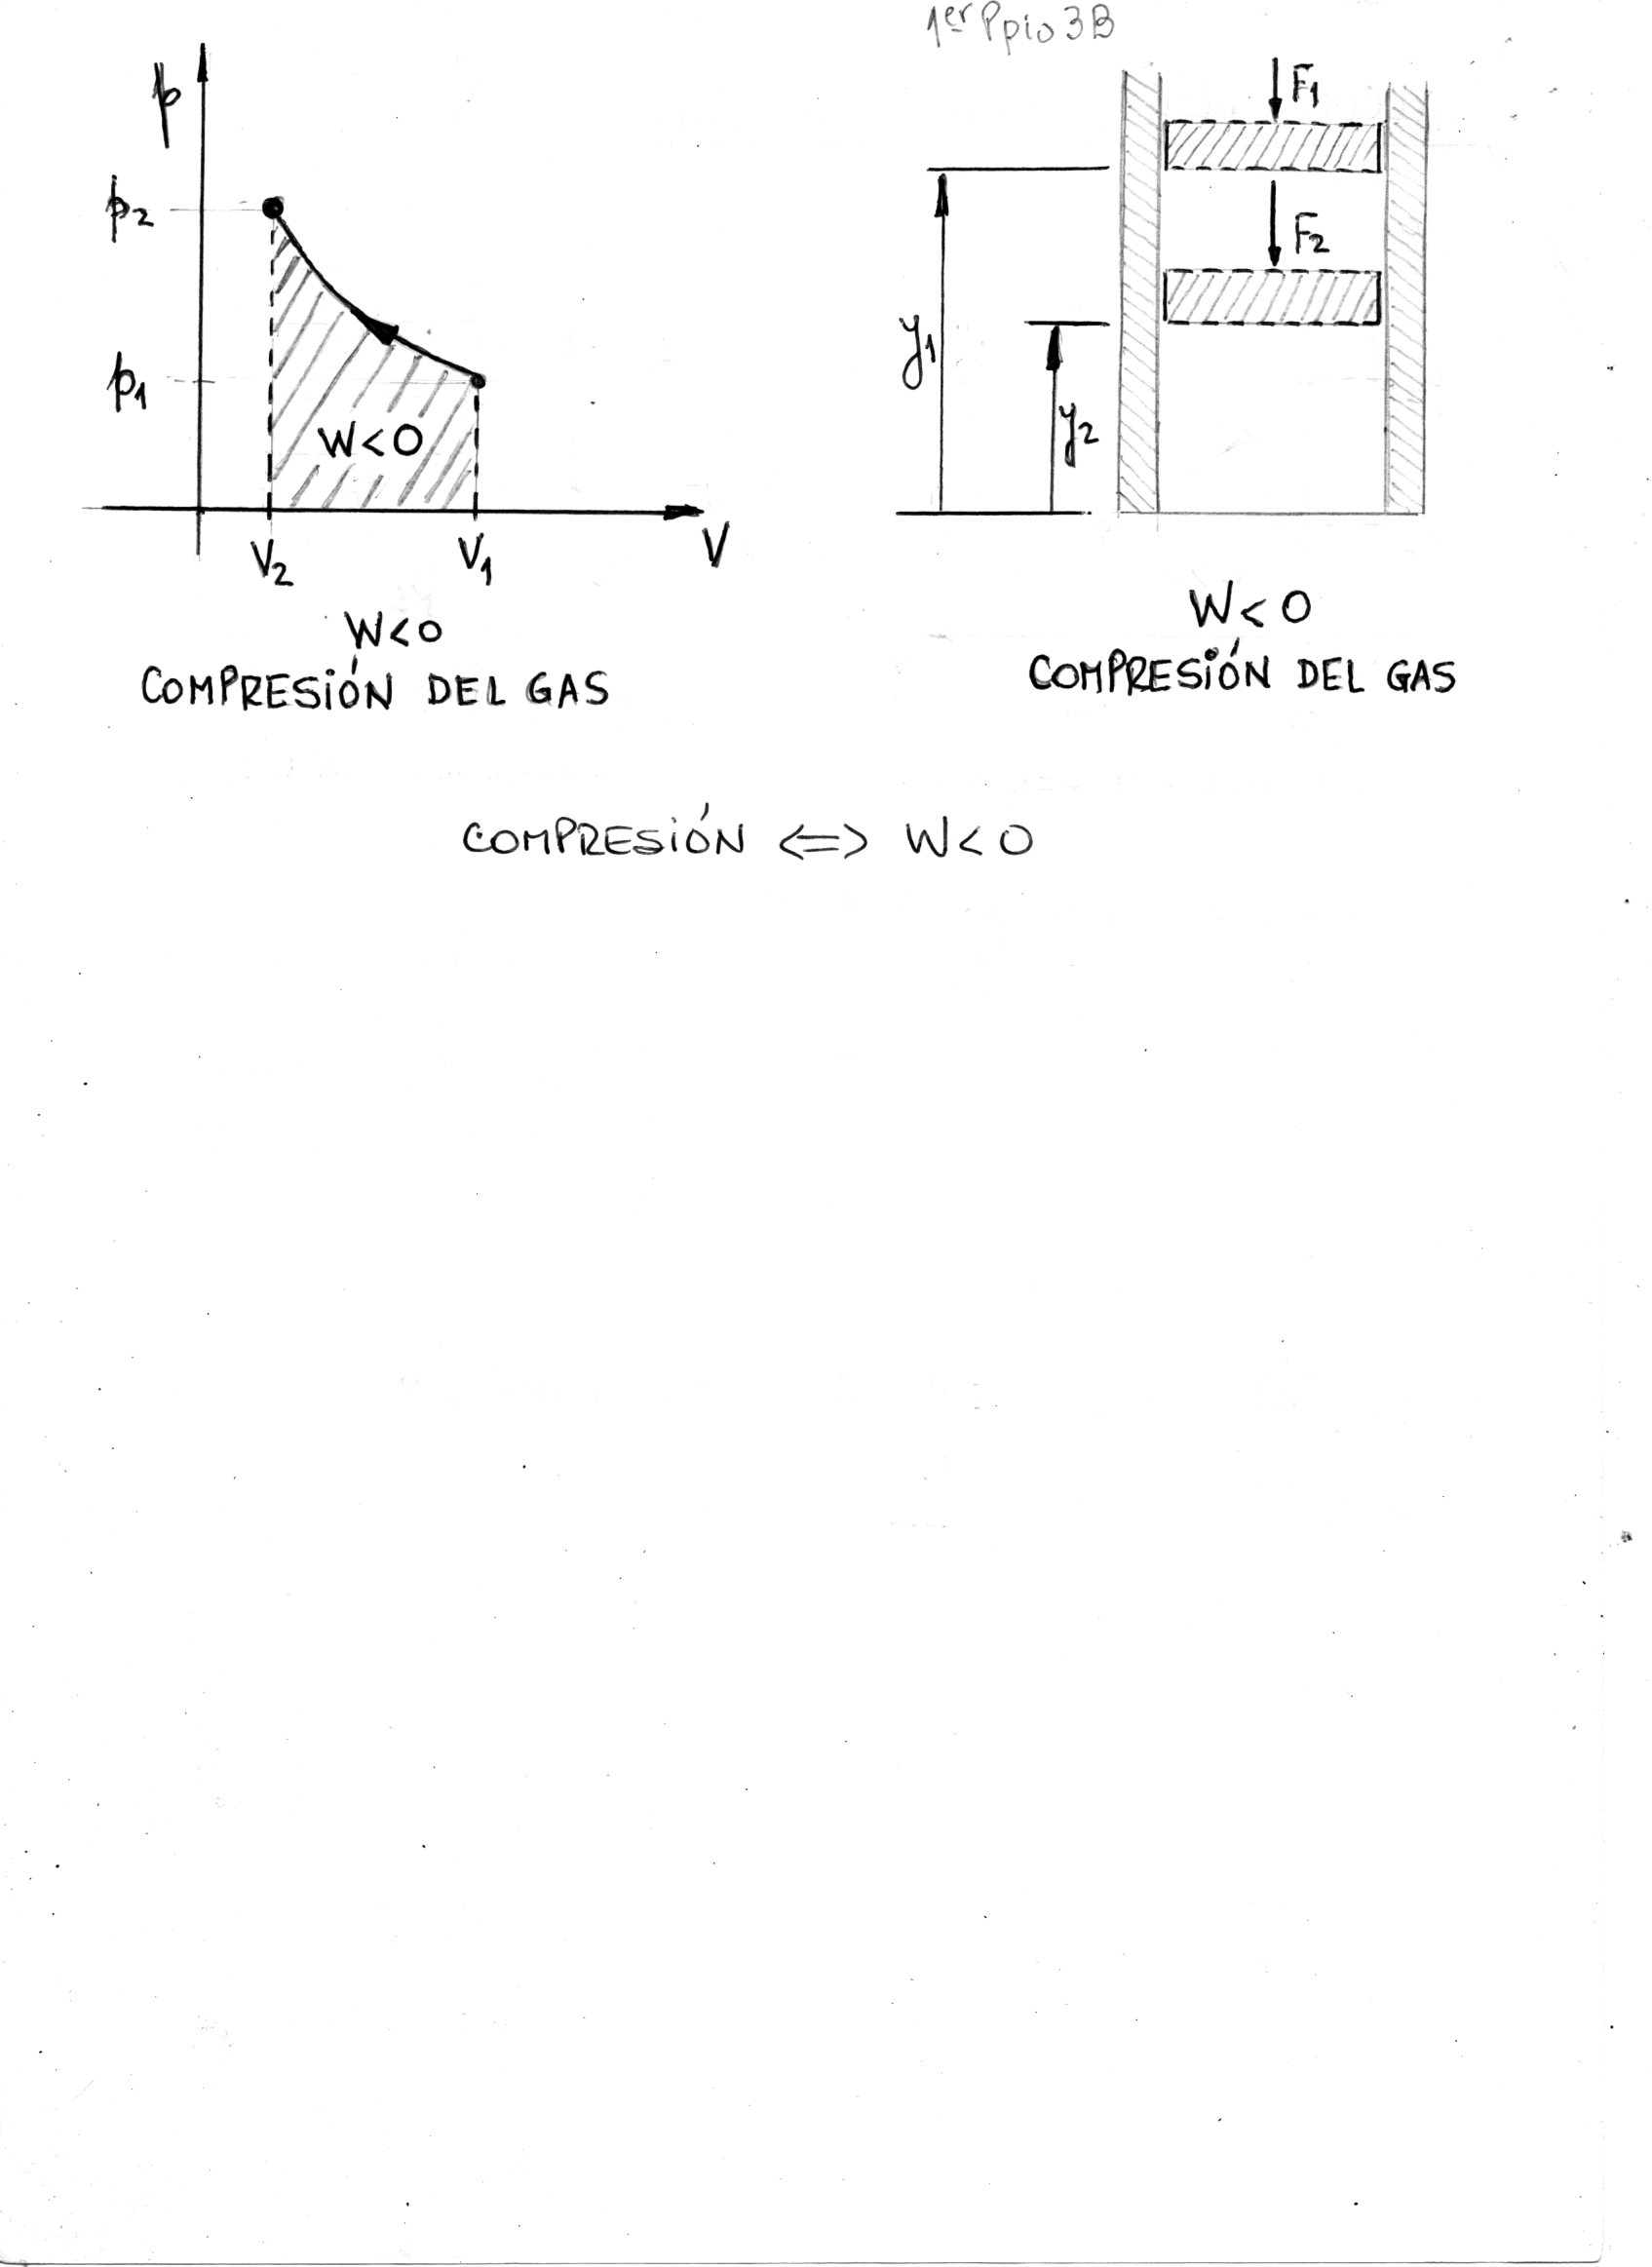 1er Ppio 3B
p
p2
p1
W<0
V2
V1
V
W<0
COMPRESIÓN DEL GAS
F1
F2
y1
y2
W<0
COMPRESIÓN DEL GAS
COMPRESIÓN <=> W<0